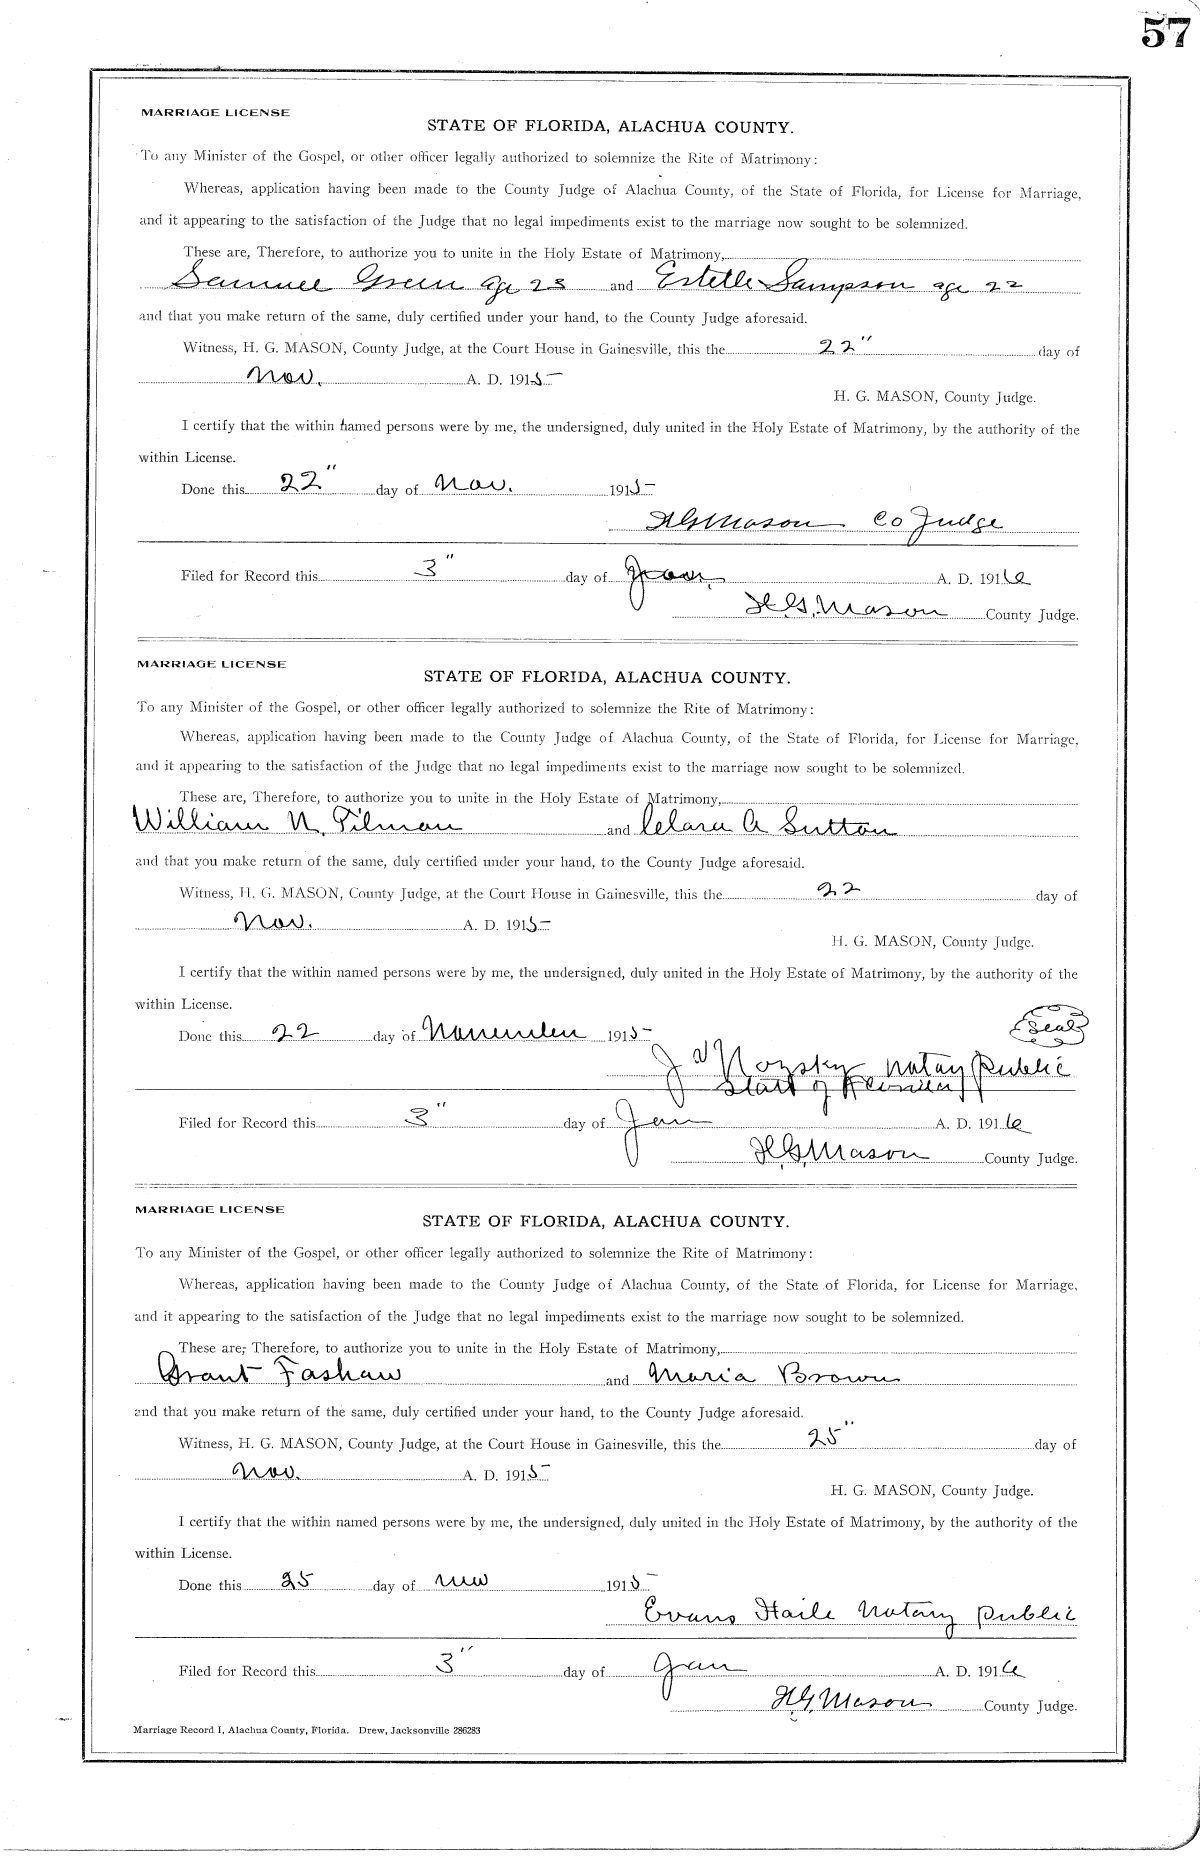 57
MARRIAGE LICENSE
STATE OF FLORIDA, ALACHUA COUNTY.
To any Minister of the Gospel, or other officer legally authorized to solemnize the Rite of Matrimony:
Whereas, application having been made to the County Judge of Alachua County, of the State of Florida, for License for Marriage,
and it appearing to the satisfaction of the Judge that no legal impediments exist to the marriage now sought to be solemnized.
These are, Therefore, to authorize you to unite in the Holy Estate of Matrimony,
Samuel Green age 23 and Estelle Sampson age 22
and that you make return of the same, duly certified under your hand, to the County Judge aforesaid.
Witness, H. G. MASON, County Judge, at the Court House in Gainesville, this the 22" day of
Nov. A. D. 1915
H. G. MASON, County Judge.
I certify that the within named persons were by me, the undersigned, duly united in the Holy Estate of Matrimony, by the authority of the
within License.
Done this 22" day of Nov. 1915
H G Mason Co Judge
Filed for Record this 3" day of Jan. A. D. 1916
H. G. Mason County Judge.
MARRIAGE LICENSE
STATE OF FLORIDA, ALACHUA COUNTY.
To any Minister of the Gospel, or other officer legally authorized to solemnize the Rite of Matrimony:
Whereas, application having been made to the County Judge of Alachua County, of the State of Florida, for License for Marriage,
and it appearing to the satisfaction of the Judge that no legal impediments exist to the marriage now sought to be solemnized.
These are, Therefore, to authorize you to unite in the Holy Estate of Matrimony,
William N. Tilman and Clara A Sutton
and that you make return of the same, duly certified under your hand, to the County Judge aforesaid.
Witness, H. G. MASON, County Judge, at the Court House in Gainesville, this the 22 day of
Nov. A. D. 1915
H. G. MASON, County Judge.
I certify that the within named persons were by me, the undersigned, duly united in the Holy Estate of Matrimony, by the authority of the
within License.
Done this 22 day of November 1915
Seal
J Notary Public
State of Florida
Filed for Record this 3" day of Jan A. D. 1916
H. G. Mason County Judge.
MARRIAGE LICENSE
STATE OF FLORIDA, ALACHUA COUNTY.
To any Minister of the Gospel, or other officer legally authorized to solemnize the Rite of Matrimony:
Whereas, application having been made to the County Judge of Alachua County, of the State of Florida, for License for Marriage,
and it appearing to the satisfaction of the Judge that no legal impediments exist to the marriage now sought to be solemnized.
These are, Therefore, to authorize you to unite in the Holy Estate of Matrimony,
Grant Fashaw and Maria Brown
and that you make return of the same, duly certified under your hand, to the County Judge aforesaid.
Witness, H. G. MASON, County Judge, at the Court House in Gainesville, this the 25" day of
Nov. A. D. 1915
H. G. MASON, County Judge.
I certify that the within named persons were by me, the undersigned, duly united in the Holy Estate of Matrimony, by the authority of the
within License.
Done this 25 day of Nov 1915
Evans Haile Notary Public
Filed for Record this 3" day of Jan A. D. 1916
H. G. Mason County Judge.
Marriage Record I, Alachua County, Florida. Drew, Jacksonville 286283